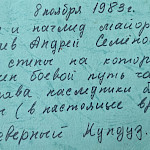 8 ноября 1983г.
и начмед майор
ив Андрей Семёно
на котор
боевой путь
ава наслужки б
( в настоящее вр
еверный Кундуз.